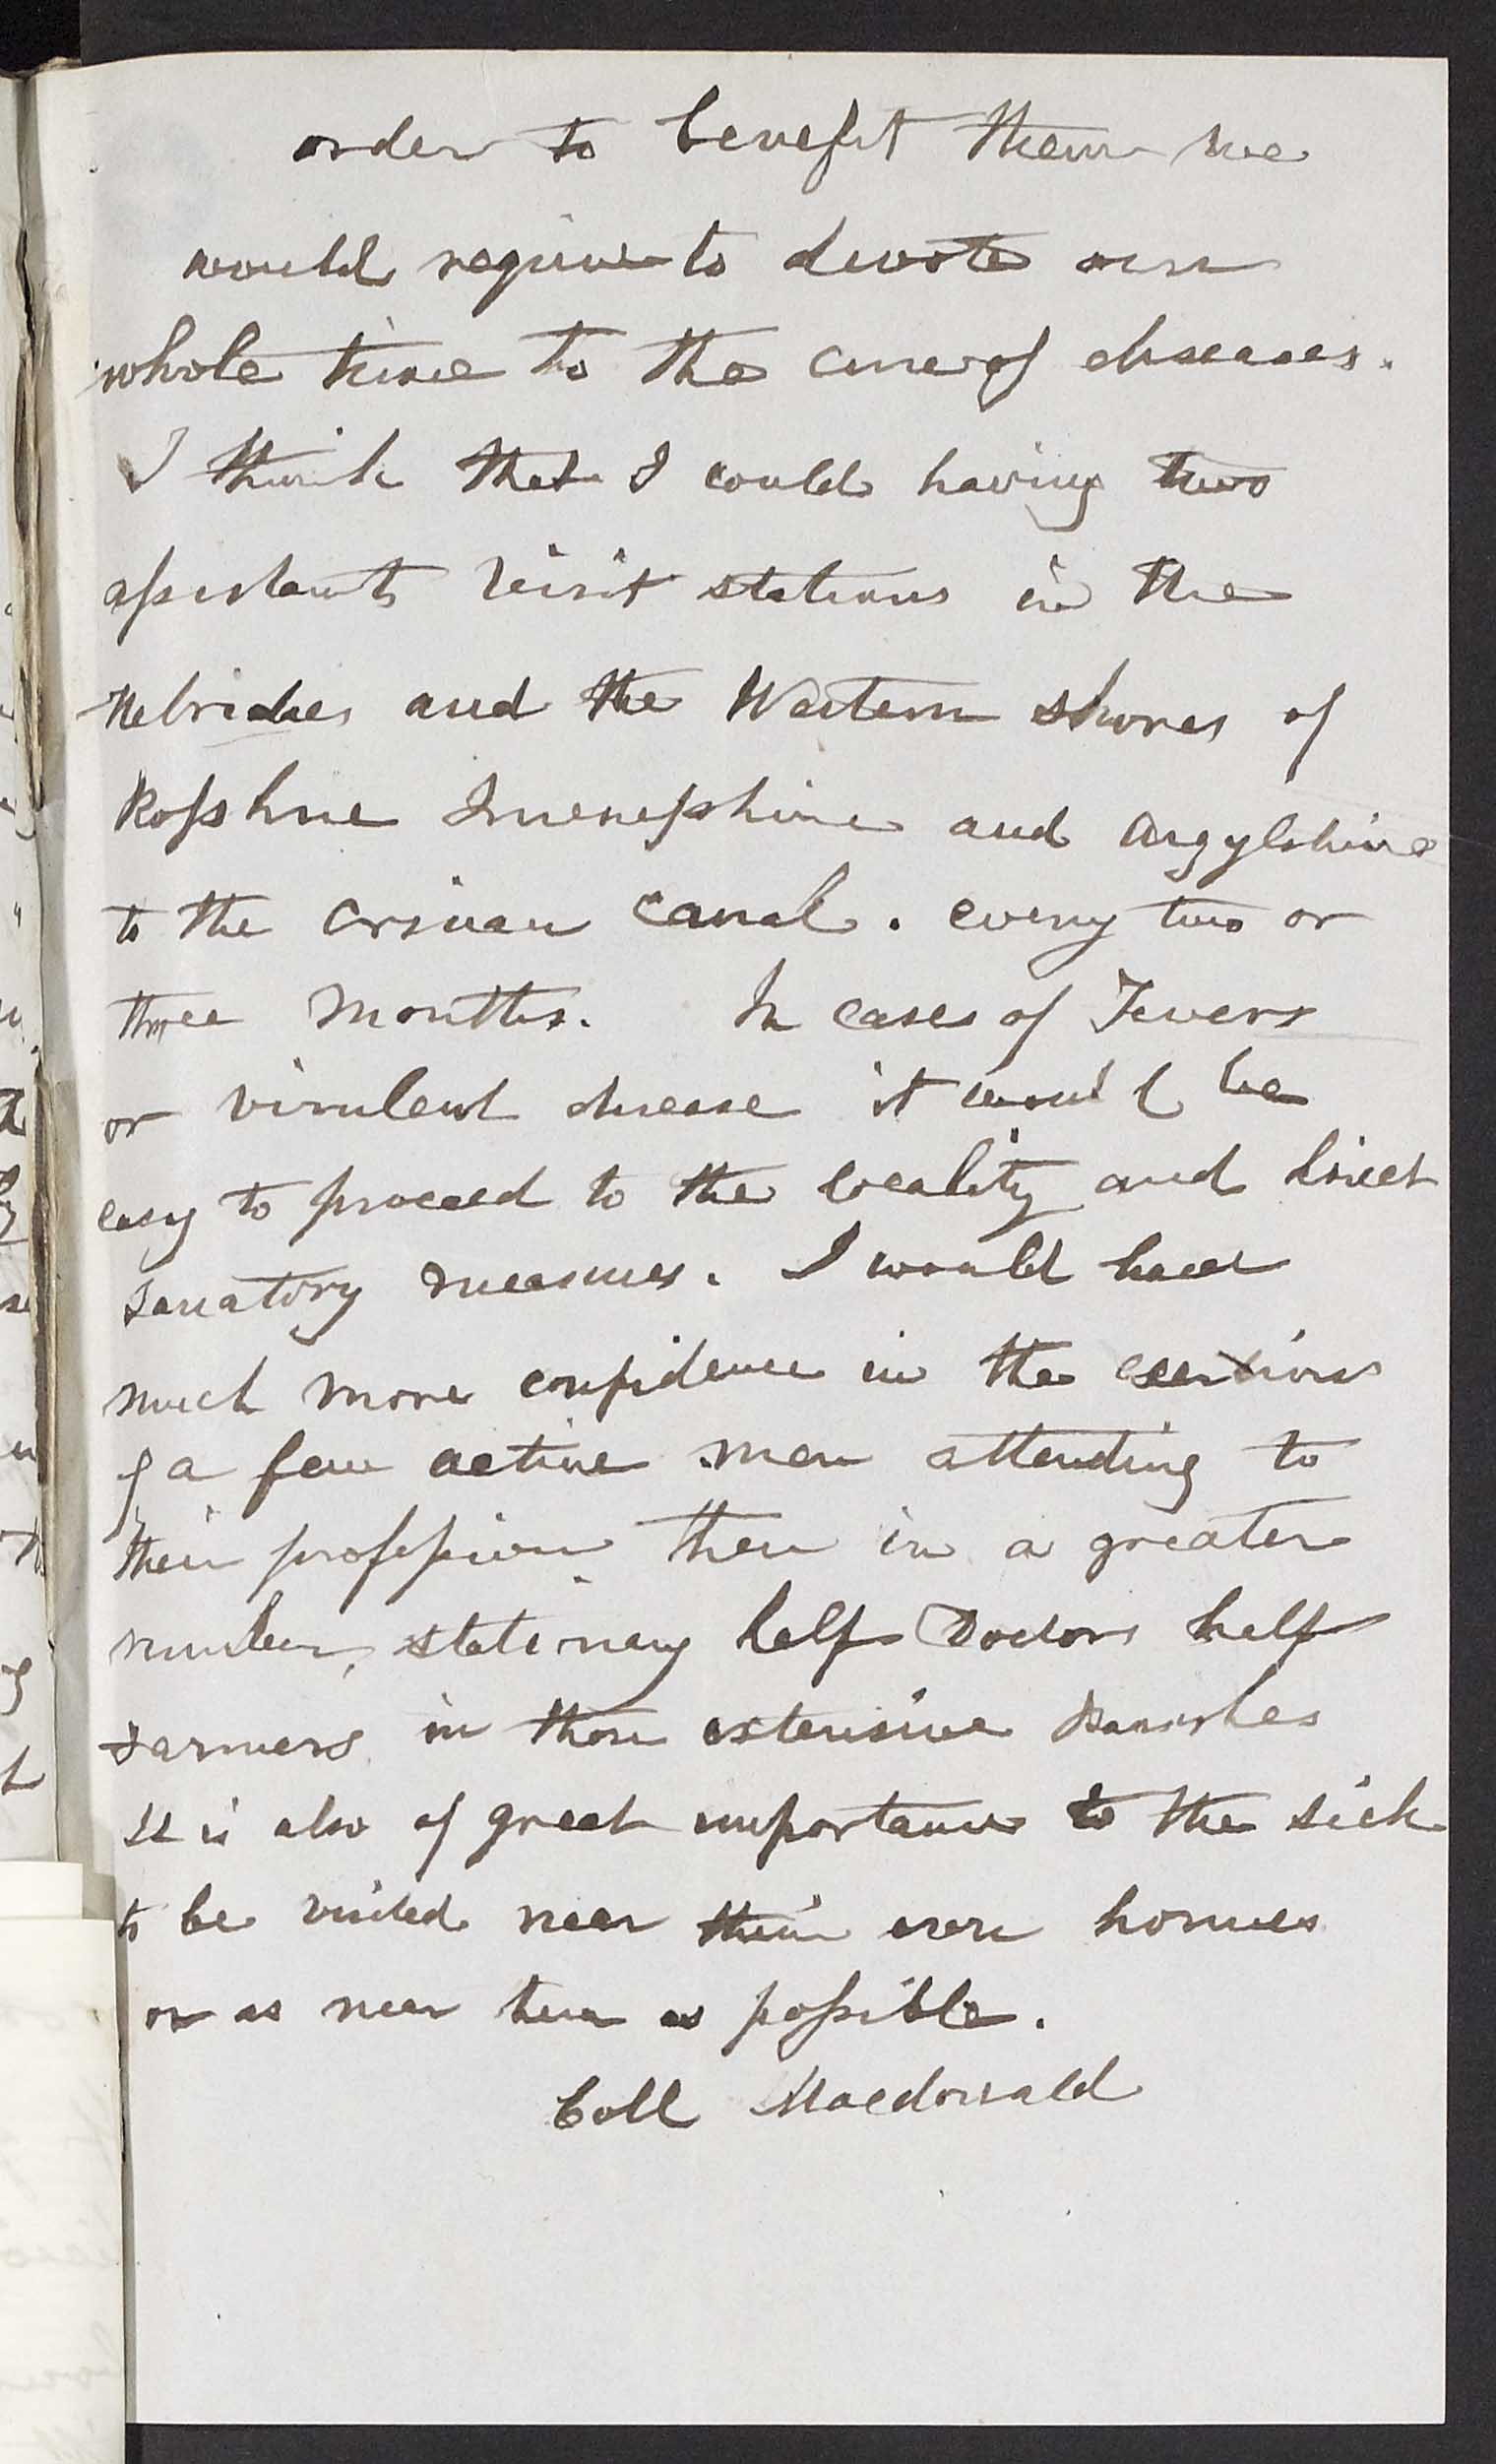 order to benefit them we
would require to devote our
whole time to the cure of diseases.
I think that I could having two
assistants visit stations in the
Hebrides and the Western shores of
Rossshire Invernessshire and Argylshire
to the Crinan Canal. every two or
three months. In cases of Fevers
or virulent disease it would be
easy to proceed to the locality and direct
sanatory measures. I would have
much more confidence in the exertions
of a few active men attending to
their profession than in a greater
number, stationary half Doctors half
Farmers in those extensive parishes
It is also of great importance to the sick
to be visited near their own homes
or as near them as possible.
Coll Macdonald